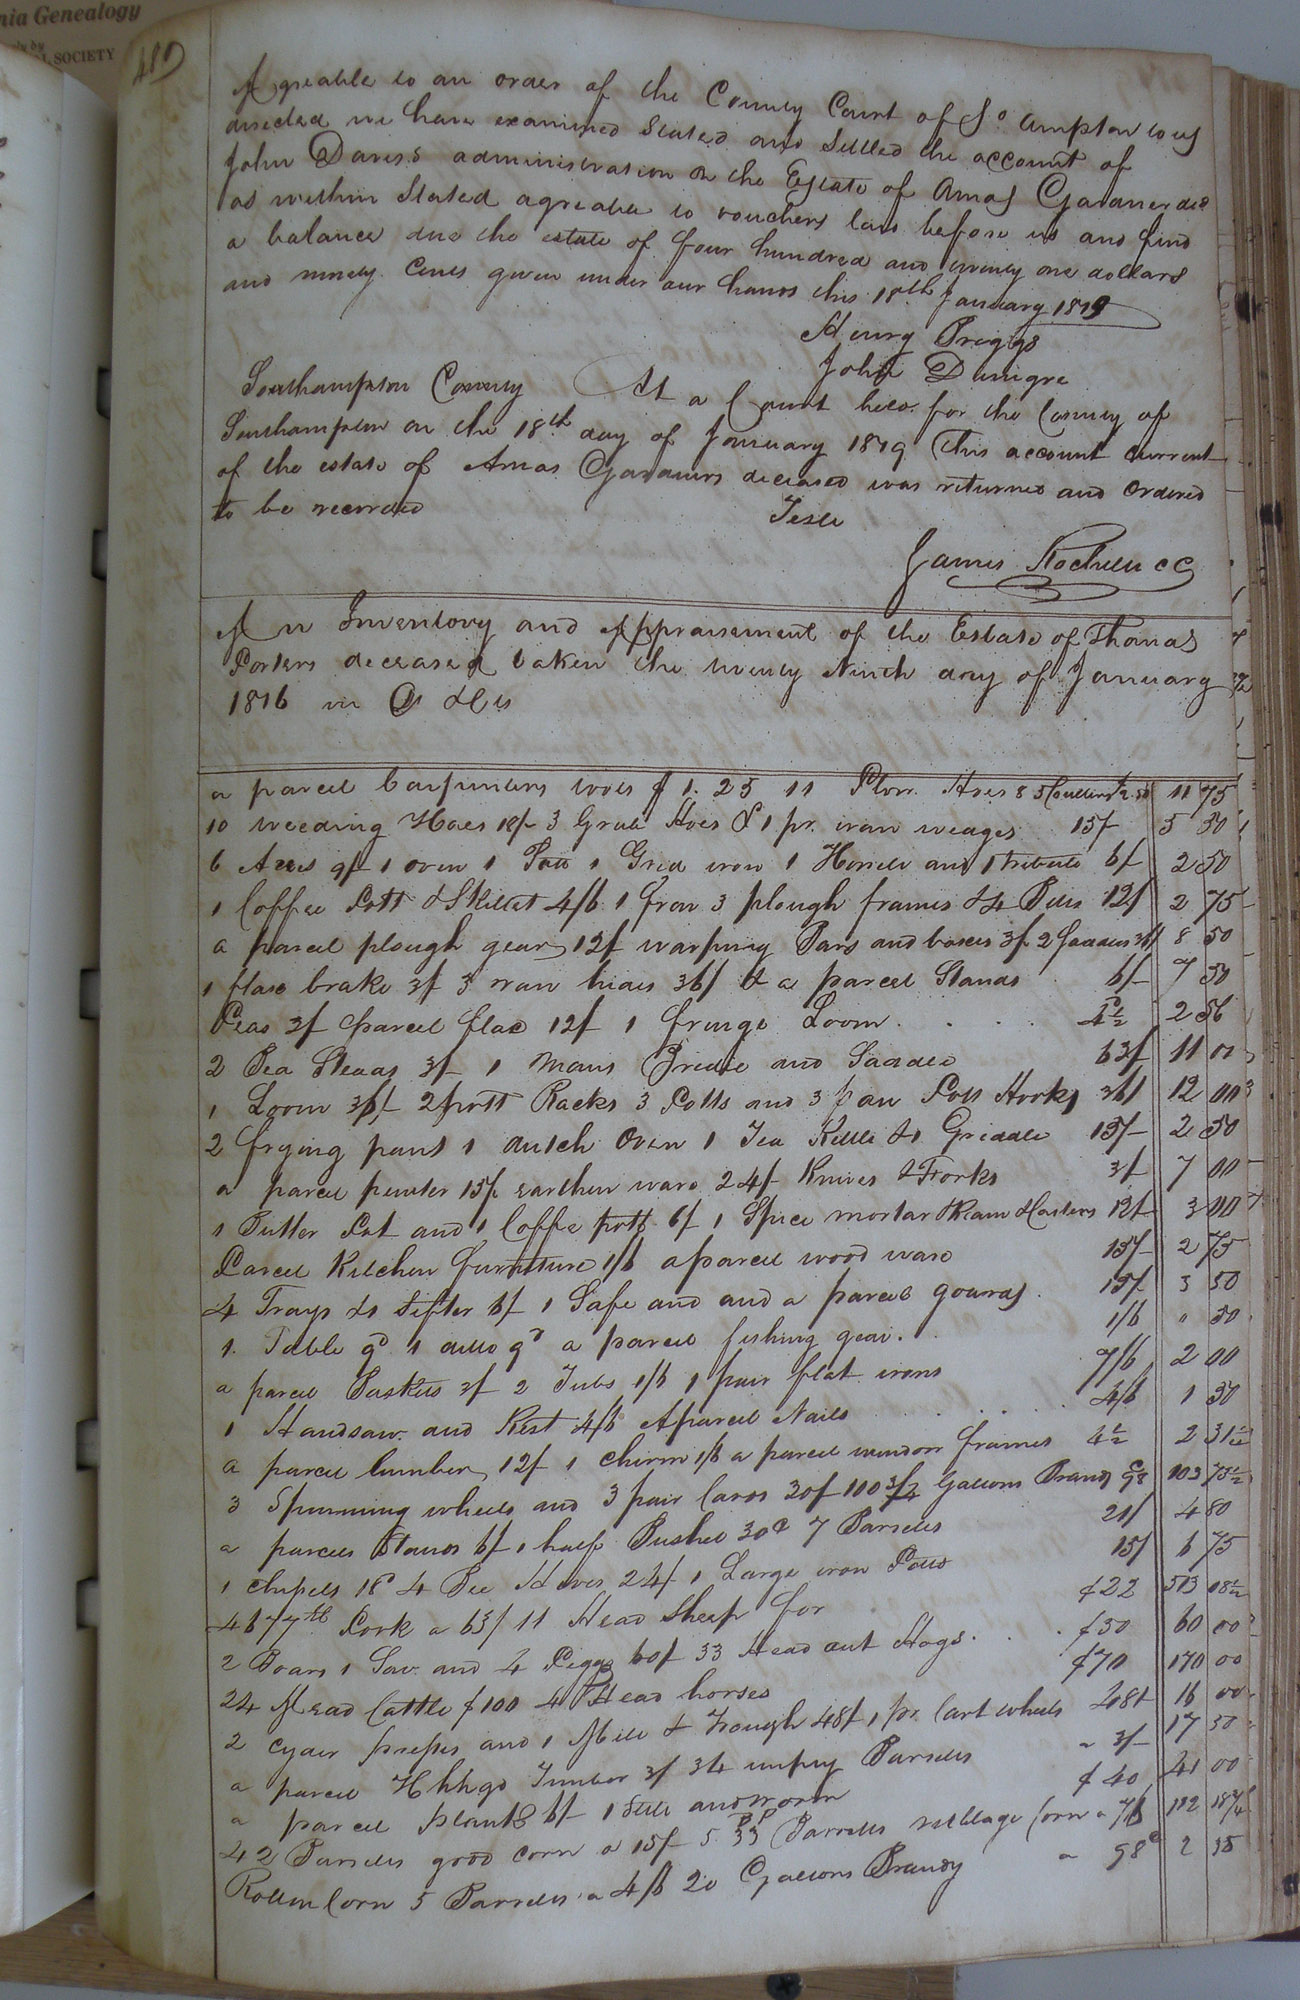 nia Genealogy
by
SOCIETY
480
Agreable to an order of the County Court of So. ampton to us
directed we have examined Stated and Settled the account of
John Daviss administration on the Estate of Amos Gardner decd
as within Stated agreable to vouchers laid before us and find
a balance due the estate of four hundred and twenty one dollars
and ninety Cents given under our hands this 18th January 1819
Henry Briggs
John
Southampton County At a Court held for the County of
Southampton on the 18th day of January 1819 This account current
of the estate of Amos Gardners deceased was returned and ordered
to be recorded
Teste
James Rochelle CC
An Inventory and Appraisement of the Estate of Thomas
Porters deceased taken the twenty Ninth day of January
1816 in
a parcel Carpenters tools $ 1.25 11 Plow Hoes 8 5 Coulters 11 75
10 weeding Hoes 18/- 3 Grub Hoes & 1 pr. iron wedges 15/ 5 50
6 Axes 9/ 1 oven 1 Pott 1 Grid iron 1 and 1 6/ 2 50
1 Coffee Pott & Skillet 4/6 1 3 plough frames & 4 12/ 2 75
a parcel plough gear 12/ warping Bars and boxes 3/ 2 8 50
1 flax brake 3/ 3 raw hides 36/ & a parcel Stands 6/- 7 50
Peas 3/ parcel flax 12/ 1 fringe Loom 4½ 2 56
2 Bea 3/ 1 Mans Bridle and Saddle 63/ 11 00
1 Loom 36/- 2 pott Racks 3 Potts and 3 pair Pott Hooks 36/ 12 00
2 frying pans 1 dutch Oven 1 Tea Kettle & 1 Griddle 15/- 2 50
a parcel pewter 15/ earthen ware 24/- Knives & Forks 3/ 7 00
1 Butter Pot and 1 Coffe pott 6/ 1 Spice mortar & 12/ 3 00
Parcel Kitchen furniture 1/6 a parcel wood ware 15/- 2 75
4 Trays & 1 Sifter 6/ 1 Safe and and a parcel gourds 15/ 3 50
1 Table 9d 1 ditto 9d a parcel fishing gear 1/6 " 50
a parcel Baskets 3/ 2 Tubs 1/6 1 pair flat irons 7/6 2 00
1 Handsaw and Rest 4/6 A parcel Nails 4/6 1 50
a parcel lumber 12/ 1 churn 1/6 a parcel window frames 4½ 2 31½
3 Spinning wheels and 3 pair Cards 30/ 100 Gallons Brandy 98 103 75½
a parcel Stands 6/ 1 half Bushel 30c 7 Barrels 21/ 4 80
1 chipels 18d 4 Bee Hives 24/ 1 Large iron Potts 15/ 6 75
4677lb Pork a 63/ 11 Head Sheep for $22 513 18½
2 Boars 1 Sow and 4 Piggs 60/ 33 Head out Hogs $50 60 00
24 Head Cattle $100 4 Head horses $70 170 00
2 cyder presses and 1 Mill & Trough 48/ 1 pr. Cart wheels 48/ 16 00
a parcel Hhhgd Timber 3/ 34 empty Barrels a 3/- 17 50
a parcel plank 6/ 1 Still and worm $40 41 00
42 Barrels good corn a 15/ 5 Barrells Corn a 7/6 112 18¾
Rotten Corn 5 Barrells a 4/6 20 Gallons Brandy a 98c 2